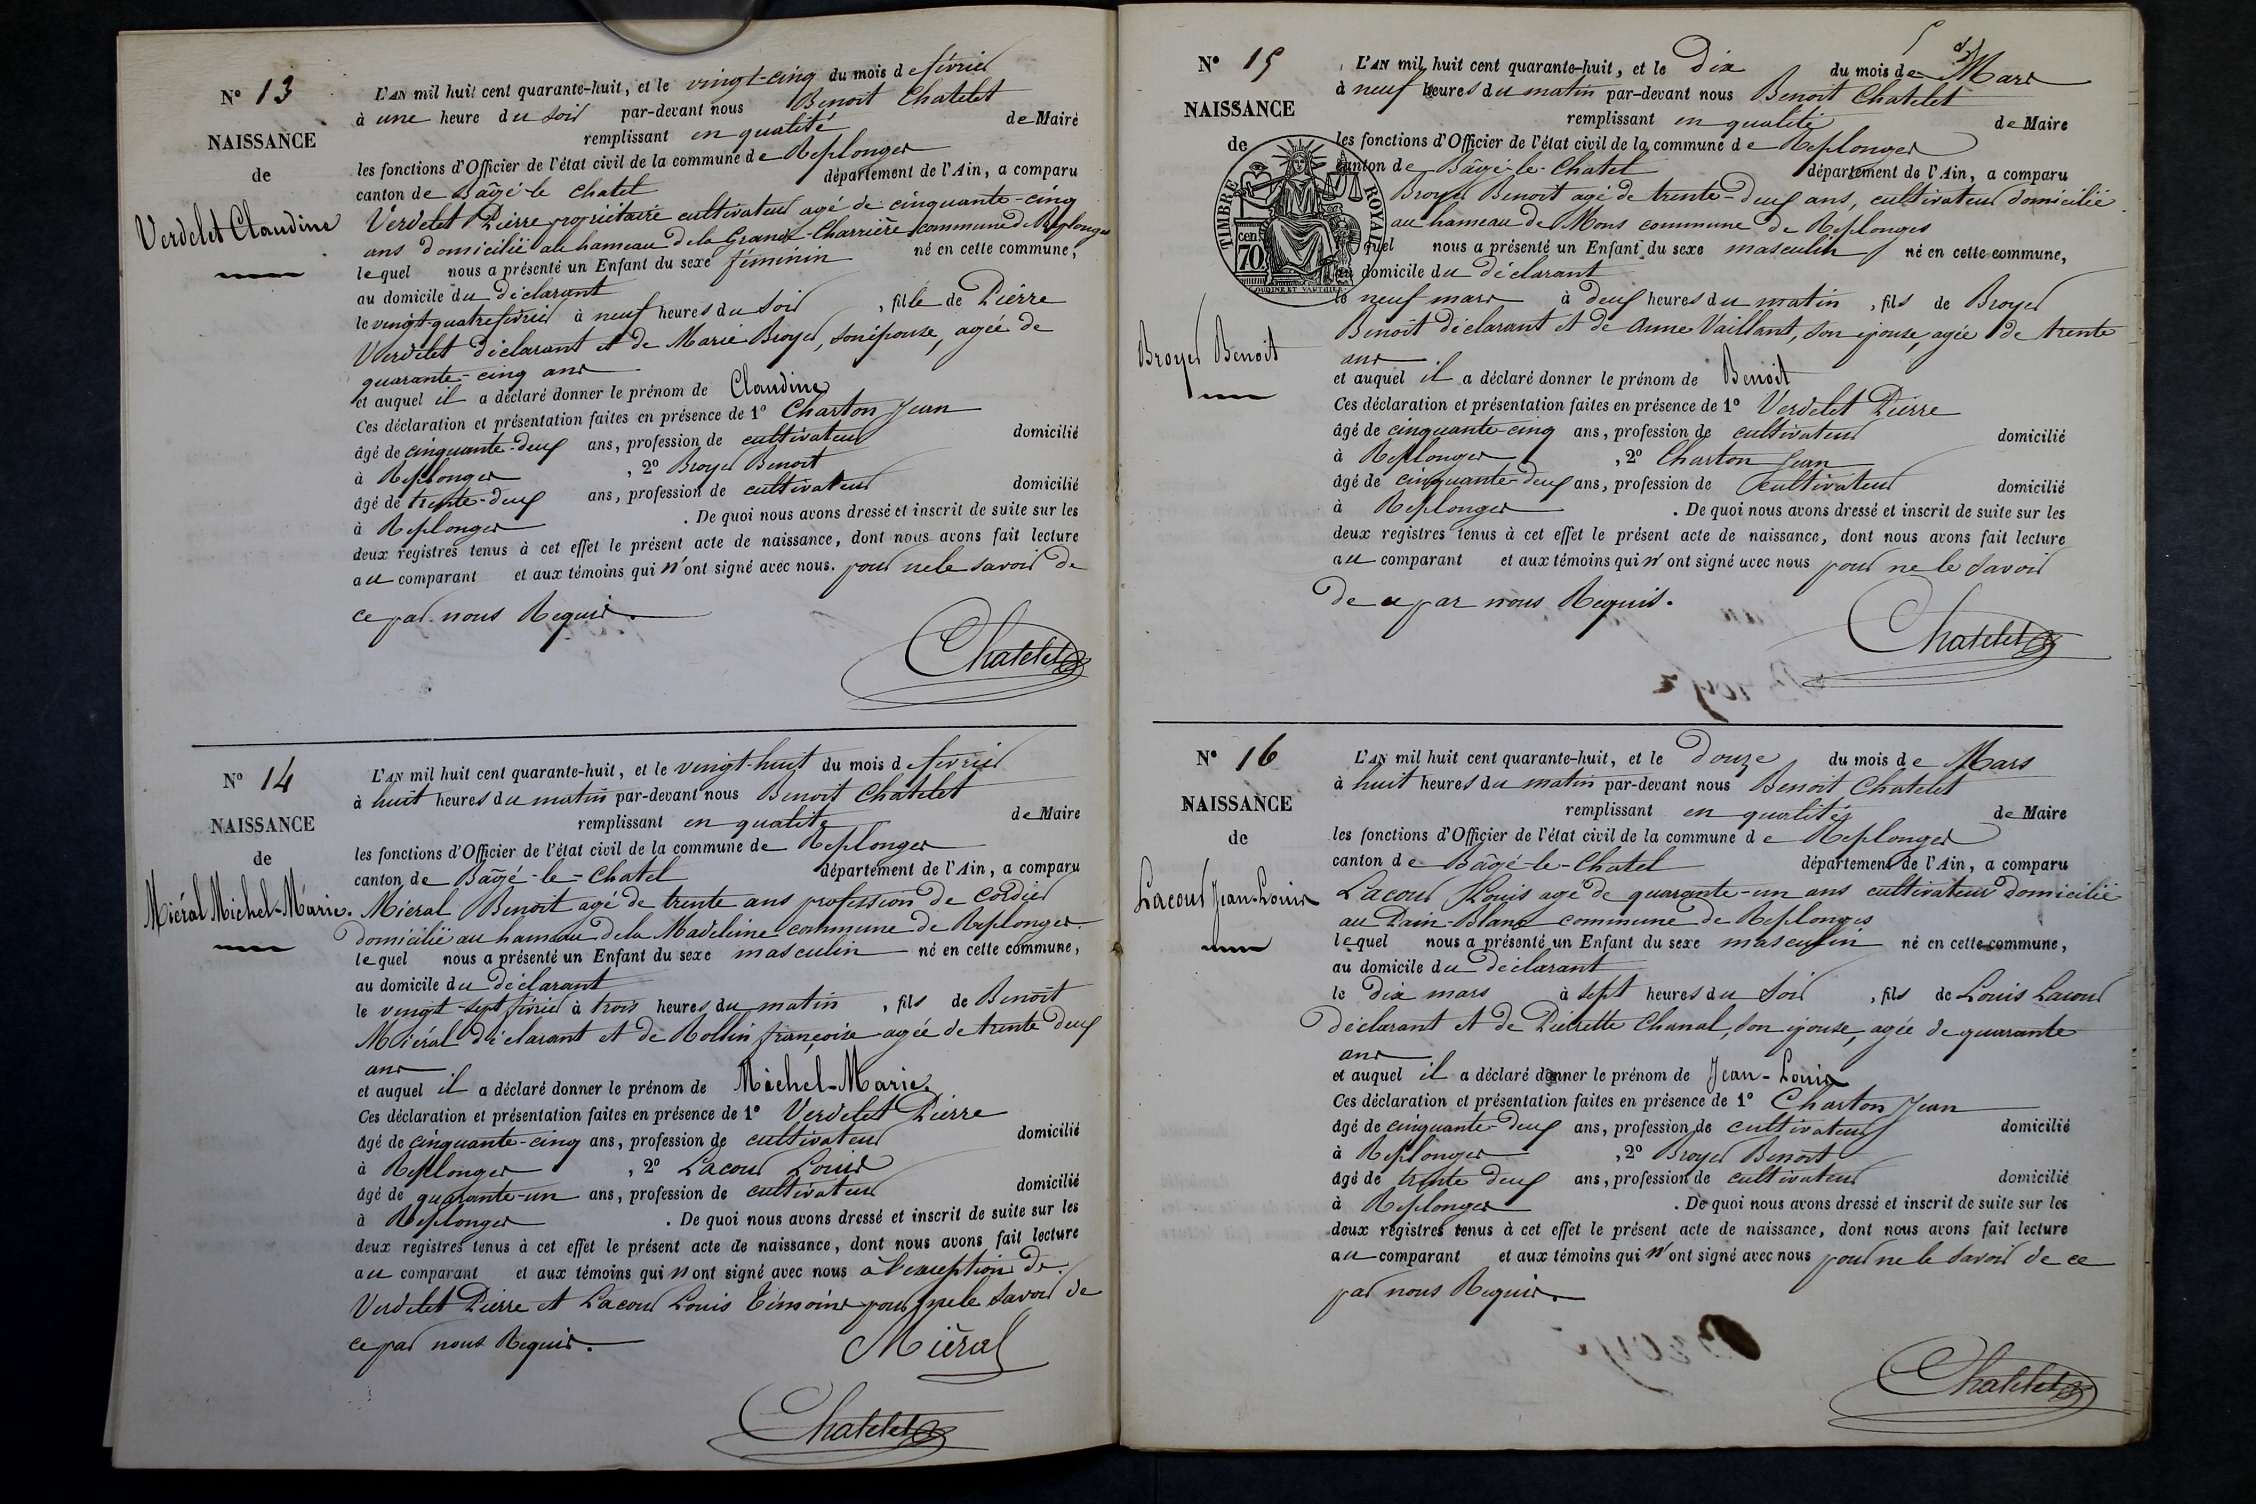 N° 13
NAISSANCE
de
Verdelet Claudine
L'AN mil huit cent quarante-huit, et le vingt-cinq du mois de février
à une heure du soir par-devant nous Benoit Chatelet
remplissant en qualité de Maire
les fonctions d'Officier de l'état civil de la commune de Replonges
canton de Bâgé-le-Chatel département de l'Ain, a comparu
Verdelet Pierre propriétaire cultivateur agé de cinquante-cinq
ans domicilié au hameau de la Grande-Charrière commune de Replonges
lequel nous a présenté un Enfant du sexe féminin né en cette commune,
au domicile du déclarant
le vingt-quatre février à neuf heures du soir, fille de Pierre
Verdelet déclarant et de Marie Broyer, son épouse, agée de
quarante-cinq ans
et auquel il a déclaré donner le prénom de Claudine
Ces déclaration et présentation faites en présence de 1° Charton Jean
âgé de cinquante-deux ans, profession de cultivateur domicilié
à Replonges, 2° Broyer Benoit
âgé de trente-deux ans, profession de cultivateur domicilié
à Replonges. De quoi nous avons dressé et inscrit de suite sur les
deux registres tenus à cet effet le présent acte de naissance, dont nous avons fait lecture
au comparant et aux témoins qui n'ont signé avec nous. pour ne le savoir de
ce par nous Requis.
Chatelet
N° 14
NAISSANCE
de
Miéral Michel-Marie.
L'AN mil huit cent quarante-huit, et le vingt-huit du mois de février
à huit heures du matin par-devant nous Benoit Chatelet
remplissant en qualité de Maire
les fonctions d'Officier de l'état civil de la commune de Replonges
canton de Bâgé-le-Chatel département de l'Ain, a comparu
Miéral Benoit agé de trente ans profession de Cordier
domicilié au hameau de la Madeleine commune de Replonges
lequel nous a présenté un Enfant du sexe masculin né en cette commune,
au domicile du déclarant
le vingt-sept février à trois heures du matin, fils de Benoit
Miéral déclarant et de Rollin françoise agée de trente deux
ans
et auquel il a déclaré donner le prénom de Michel-Marie.
Ces déclaration et présentation faites en présence de 1° Verdelet Pierre
âgé de cinquante-cinq ans, profession de cultivateur domicilié
à Replonges, 2° Lacour Louis
âgé de quarante-un ans, profession de cultivateur domicilié
à Replonges. De quoi nous avons dressé et inscrit de suite sur les
deux registres tenus à cet effet le présent acte de naissance, dont nous avons fait lecture
au comparant et aux témoins qui n ont signé avec nous à l'exception de
Verdelet Pierre et Lacour Louis Témoins pour ne le savoir de
ce par nous Requis.
Miéral
Chatelet
N° 15
NAISSANCE
de
TIMBRE ROYAL
70 cen
Broyer Benoit
L'AN mil huit cent quarante-huit, et le dix du mois de Mars
à neuf heures du matin par-devant nous Benoit Chatelet
remplissant en qualité de Maire
les fonctions d'Officier de l'état civil de la commune de Replonges
canton de Bâgé-le-Chatel département de l'Ain, a comparu
Broyer Benoit agé de trente-deux ans, cultivateur domicilié
au hameau de Mons commune de Replonges
quel nous a présenté un Enfant du sexe masculin né en cette commune,
au domicile du déclarant
le neuf mars à deux heures du matin, fils de Broyer
Benoit déclarant et de Anne Vaillant, son épouse, agée de trente
ans
et auquel il a déclaré donner le prénom de Benoit
Ces déclaration et présentation faites en présence de 1° Verdelet Pierre
âgé de cinquante-cinq ans, profession de cultivateur domicilié
à Replonges, 2° Charton Jean
âgé de cinquante-deux ans, profession de cultivateur domicilié
à Replonges. De quoi nous avons dressé et inscrit de suite sur les
deux registres tenus à cet effet le présent acte de naissance, dont nous avons fait lecture
au comparant et aux témoins qui n'ont signé avec nous pour ne le savoir
de ce par nous Requis.
Chatelet
N° 16
NAISSANCE
de
Lacour Jean-Louis
L'AN mil huit cent quarante-huit, et le douze du mois de Mars
à huit heures du matin par-devant nous Benoit Chatelet
remplissant en qualité de Maire
les fonctions d'Officier de l'état civil de la commune de Replonges
canton de Bâgé-le-Chatel département de l'Ain, a comparu
Lacour Louis agé de quarante-un ans cultivateur domicilié
au Pain-Blanc commune de Replonges
lequel nous a présenté un Enfant du sexe masculin né en cette commune,
au domicile du déclarant
le dix mars à sept heures du soir, fils de Louis Lacour
déclarant et de Pierrette Chanal, son épouse, agée de quarante
ans
et auquel il a déclaré donner le prénom de Jean-Louis
Ces déclaration et présentation faites en présence de 1° Charton Jean
âgé de cinquante-deux ans, profession de cultivateur domicilié
à Replonges, 2° Broyer Benoit
âgé de trente deux ans, profession de cultivateur domicilié
à Replonges. De quoi nous avons dressé et inscrit de suite sur les
deux registres tenus à cet effet le présent acte de naissance, dont nous avons fait lecture
au comparant et aux témoins qui n'ont signé avec nous pour ne le savoir de ce
par nous Requis.
Chatelet